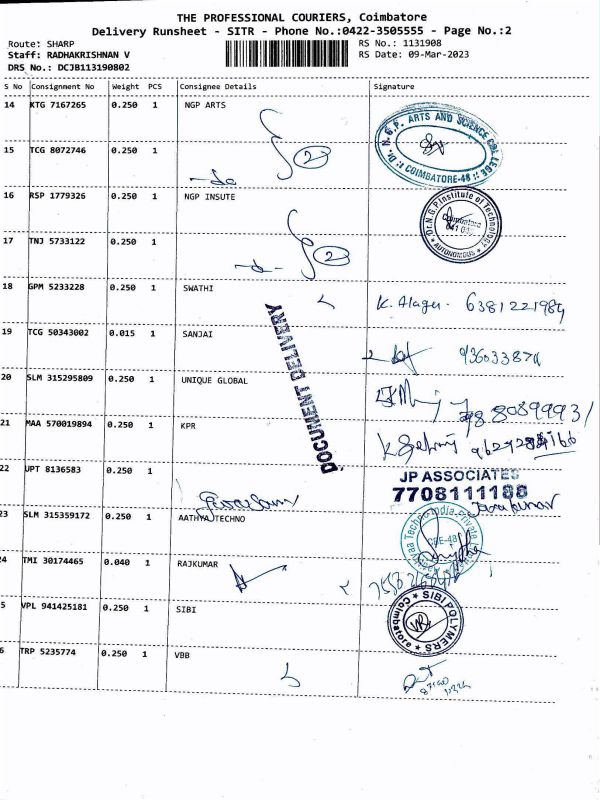 THE PROFESSIONAL COURIERS, Coimbatore
Delivery Runsheet - SITR - Phone No.:0422-3505555 - Page No.:2
Route: SHARP
RS No.: 1131908
Staff: RADHAKRISHNAN V
RS Date: 09-Mar-2023
DRS No.: DCJB113190802
S No Consignment No Weight PCS Consignee Details Signature
14 KTG 7167265 0.250 1 NGP ARTS
Dr. N.G.P. ARTS AND SCIENCE COLLEGE
COIMBATORE-48
15 TCG 8072746 0.250 1
2
16 RSP 1779326 0.250 1 NGP INSUTE
Dr.N.G.P.Institute of Technology
Coimbatore
AUTONOMOUS
17 TNJ 5733122 0.250 1
2
18 GPM 5233228 0.250 1 SWATHI
K. Alagu-
19 TCG 50343002 0.015 1 SANJAI
DOCUMENT DELIVERY
20 SLM 315295809 0.250 1 UNIQUE GLOBAL
21 MAA 570019894 0.250 1 KPR
22 UPT 8136583 0.250 1
JP ASSOCIATES
7708111188
23 SLM 315359172 0.250 1 AATHYA TECHNO
24 TMI 30174465 0.040 1 RAJKUMAR
5 VPL 941425181 0.250 1 SIBI
SIBI POLYMERS
Coimbatore
6 TRP 5235774 0.250 1 VBB